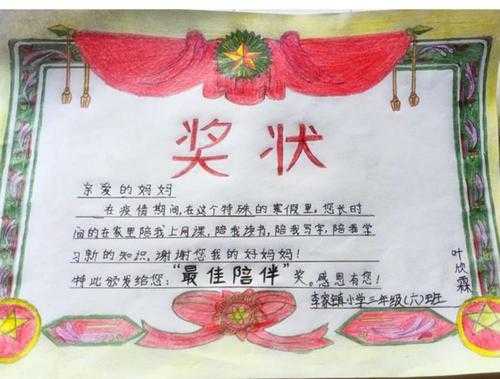 奖状
亲爱的妈妈
在疫情期间,在这个特殊的寒假里,您长时
间的在家里陪我上网课,陪我读书,陪我写字,陪我学
习新的知识,谢谢您我的好妈妈!
特此颁发给您:“最佳陪伴”奖。感恩有您!
李家镇小学三年级(六)班
叶欣霖